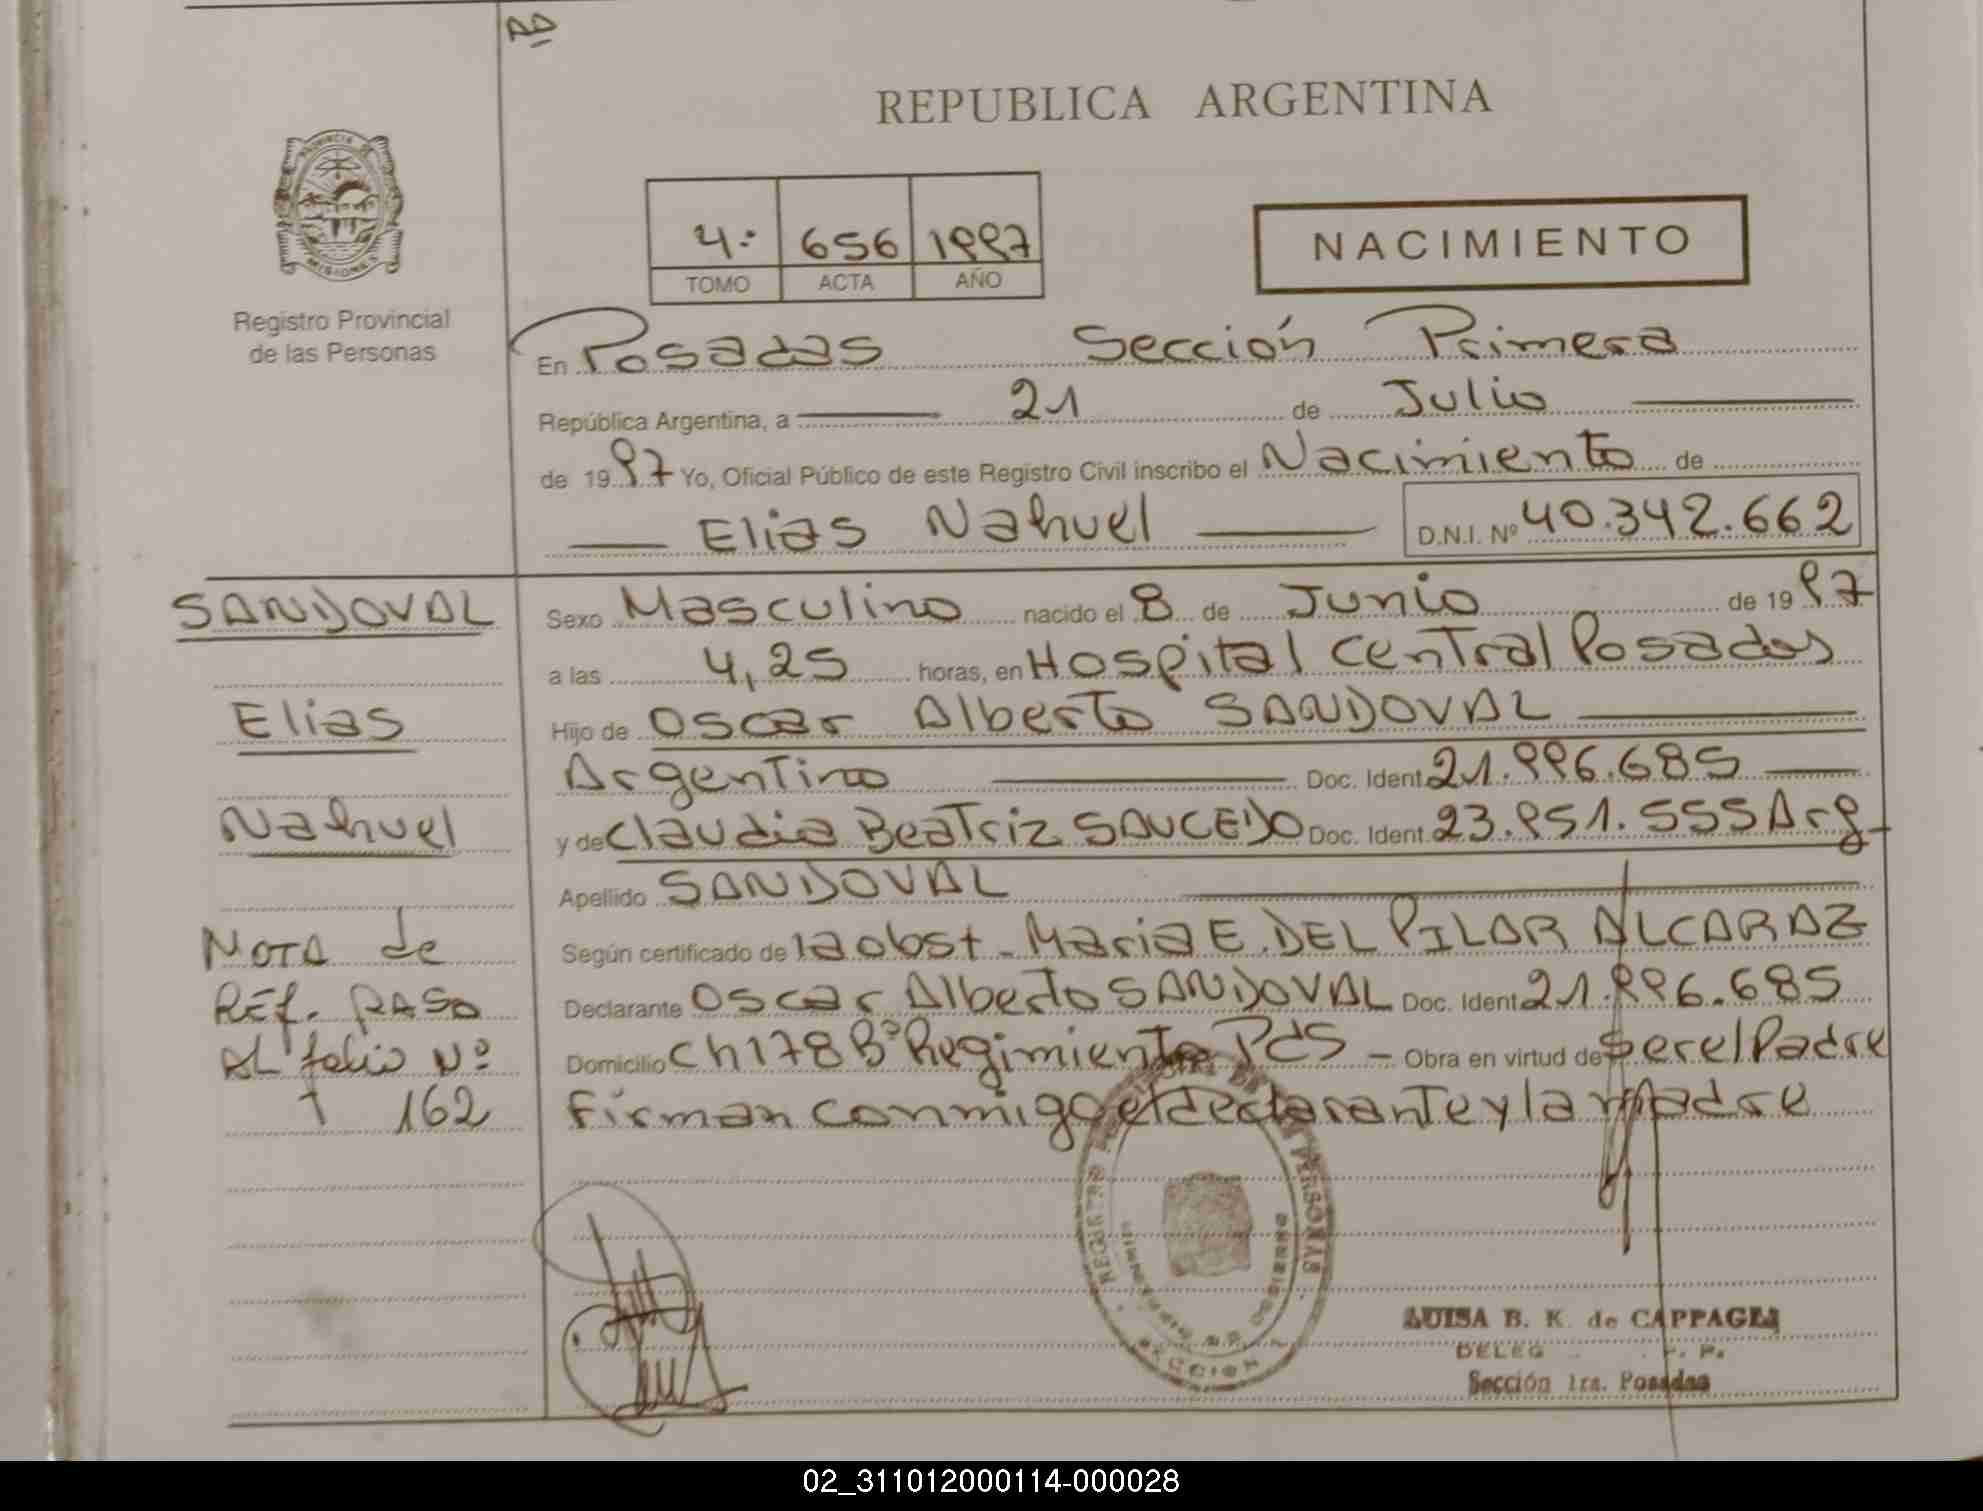 REPUBLICA ARGENTINA
PROVINCIA DE MISIONES
Registro Provincial
de las Personas
4º 656 1997
TOMO ACTA AÑO
NACIMIENTO
En Posadas Sección Primera
República Argentina, a 21 de Julio
de 1997 Yo, Oficial Público de este Registro Civil inscribo el Nacimiento de
Elias Nahuel D.N.I. Nº 40.342.662
SANDOVAL
Elias
Nahuel
Nota de
Ref. PASO
AL folio Nº
162
Sexo Masculino nacido el 8 de Junio de 1997
a las 4,25 horas, en Hospital Central Posadas
Hijo de Oscar Alberto SANDOVAL
Argentino Doc. Ident. 21.996.685
y de Claudia Beatriz SAUCEDO Doc. Ident. 23.951.555 Arg
Apellido SANDOVAL
Según certificado de la obst. Maria E. DEL PILAR ALCARAZ
Declarante Oscar Alberto SANDOVAL Doc. Ident. 21.996.685
Domicilio Ch 178 Bº Regimiento Pds - Obra en virtud de Ser el Padre
Firman conmigo el declarante y la madre
LUISA B. K. de CAPPAGLI
Sección 1ra. Posadas
02_311012000114-000028